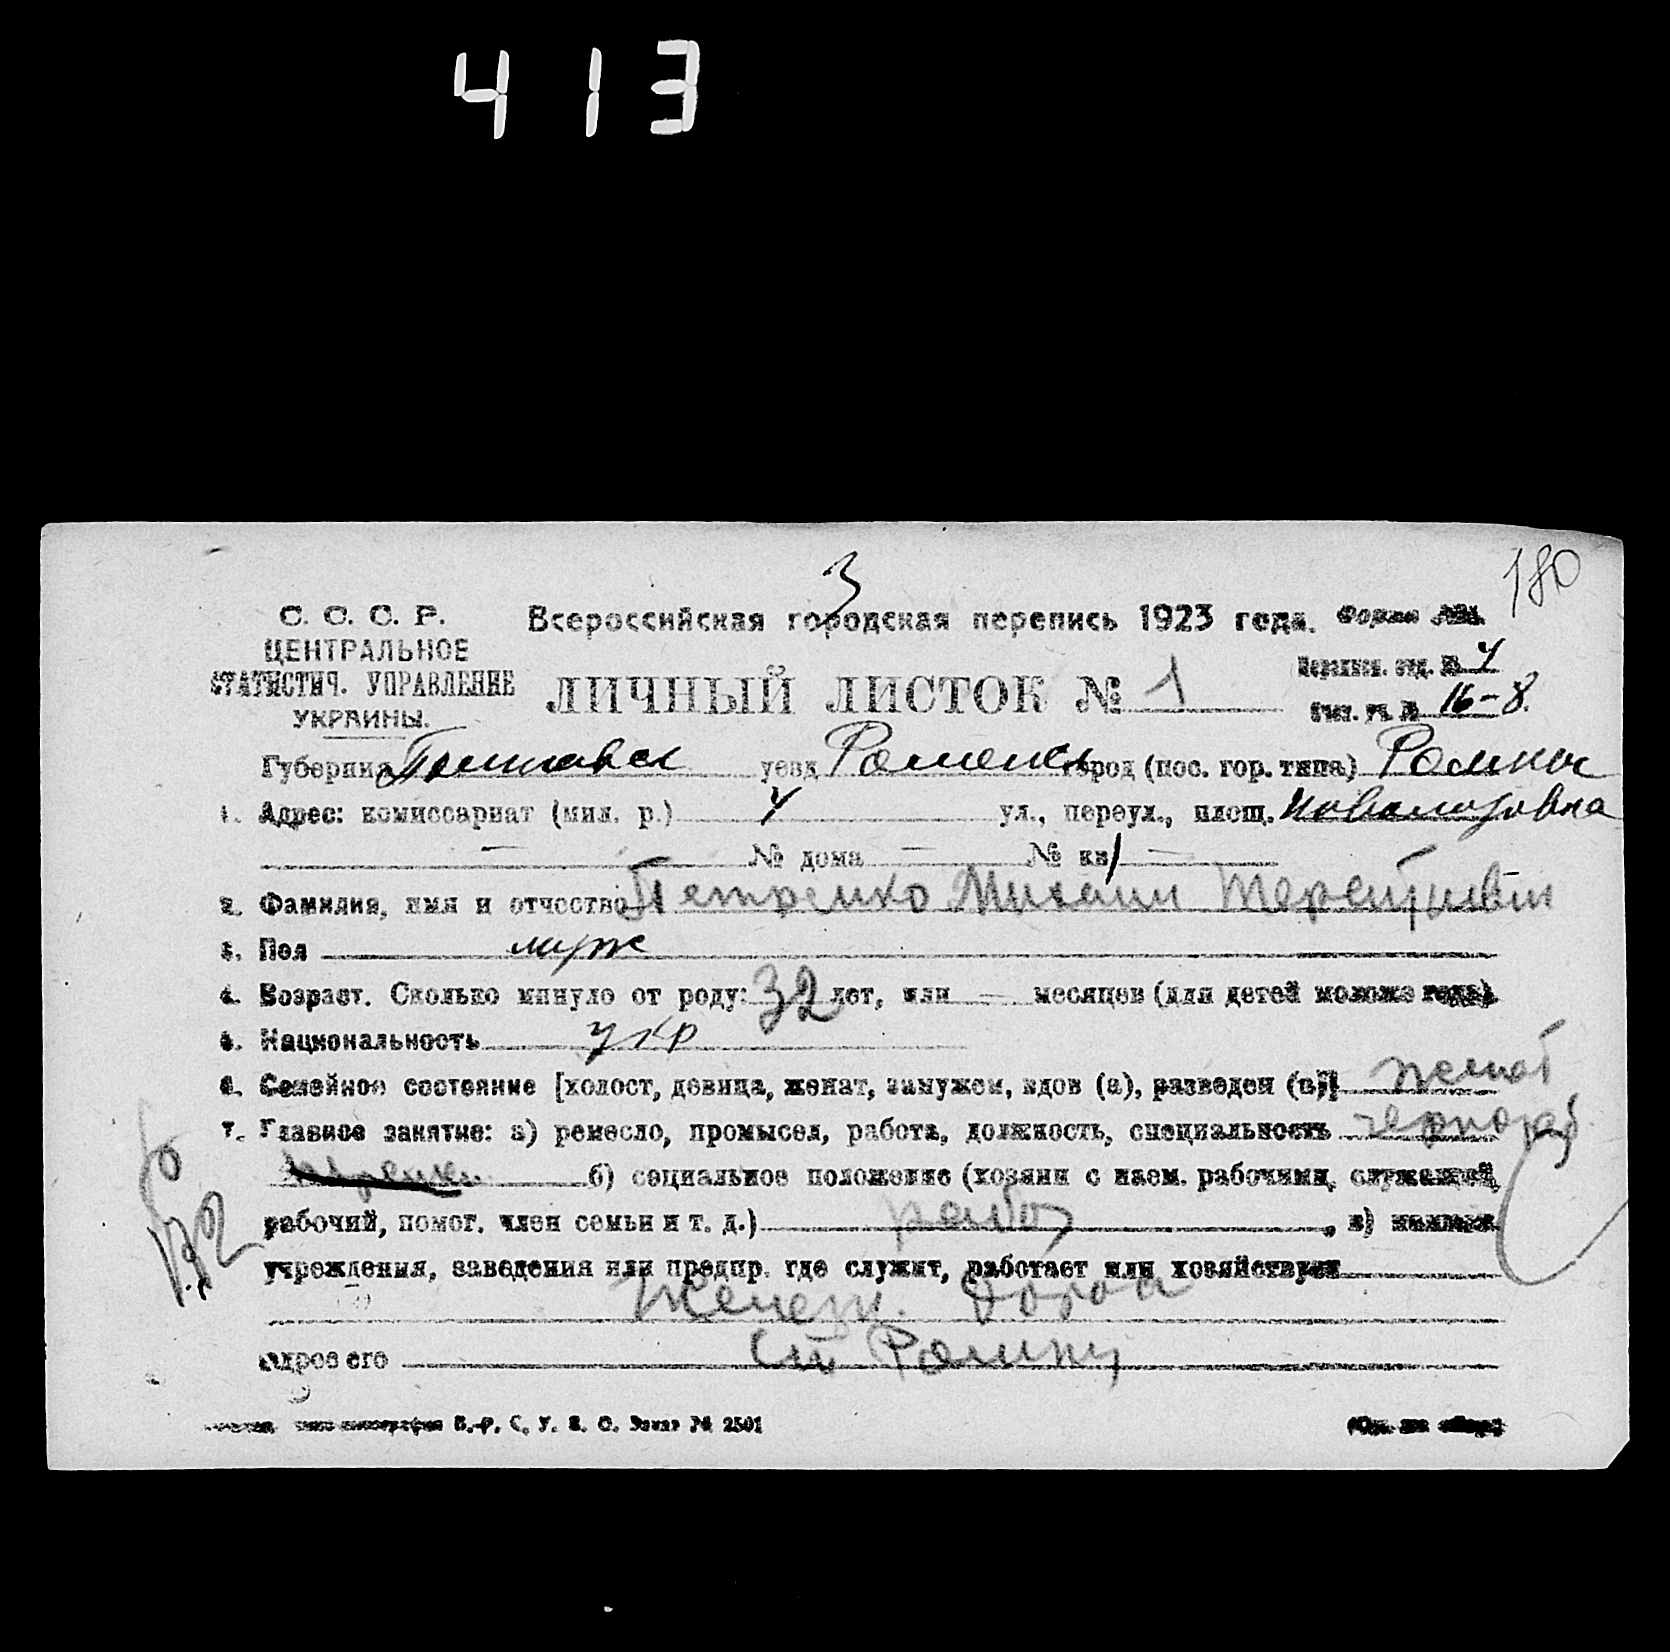 413
180
3
С. С. С. Р.
ЦЕНТРАЛЬНОЕ
СТАТИСТИЧ. УПРАВЛЕНИЕ
УКРАИНЫ.
Всероссийская городская перепись 1923 года. Форма
ЛИЧНЫЙ ЛИСТОК № 1
4
16-8.
Губерния уезд Роменск город (пос. гор. типа) Ромны
1. Адрес: комиссариат (мил. р.) 4 ул., переул., площ.
— № дома — № кв. —
2. Фамилия, имя и отчество Петренко Михаил Терентьевич
3. Пол муж
4. Возраст. Сколько минуло от роду: 32 лет, или — месяцев (для детей моложе года).
5. Национальность укр
6. Семейное состояние [холост, девица, женат, замужем, вдов (а), разведен (а)] женат
7. Главное занятие: а) ремесло, промысел, работа, должность, специальность чернораб
б) социальное положение (хозяин с наем. рабочими, служащий,
рабочий, помог. член семьи и т. д.) рабоч, в)
учреждения, заведения или предпр. где служит, работает или хозяйствует
Железн. дорога
Адрес его Ст Ромны
С. У. Заказ № 2501